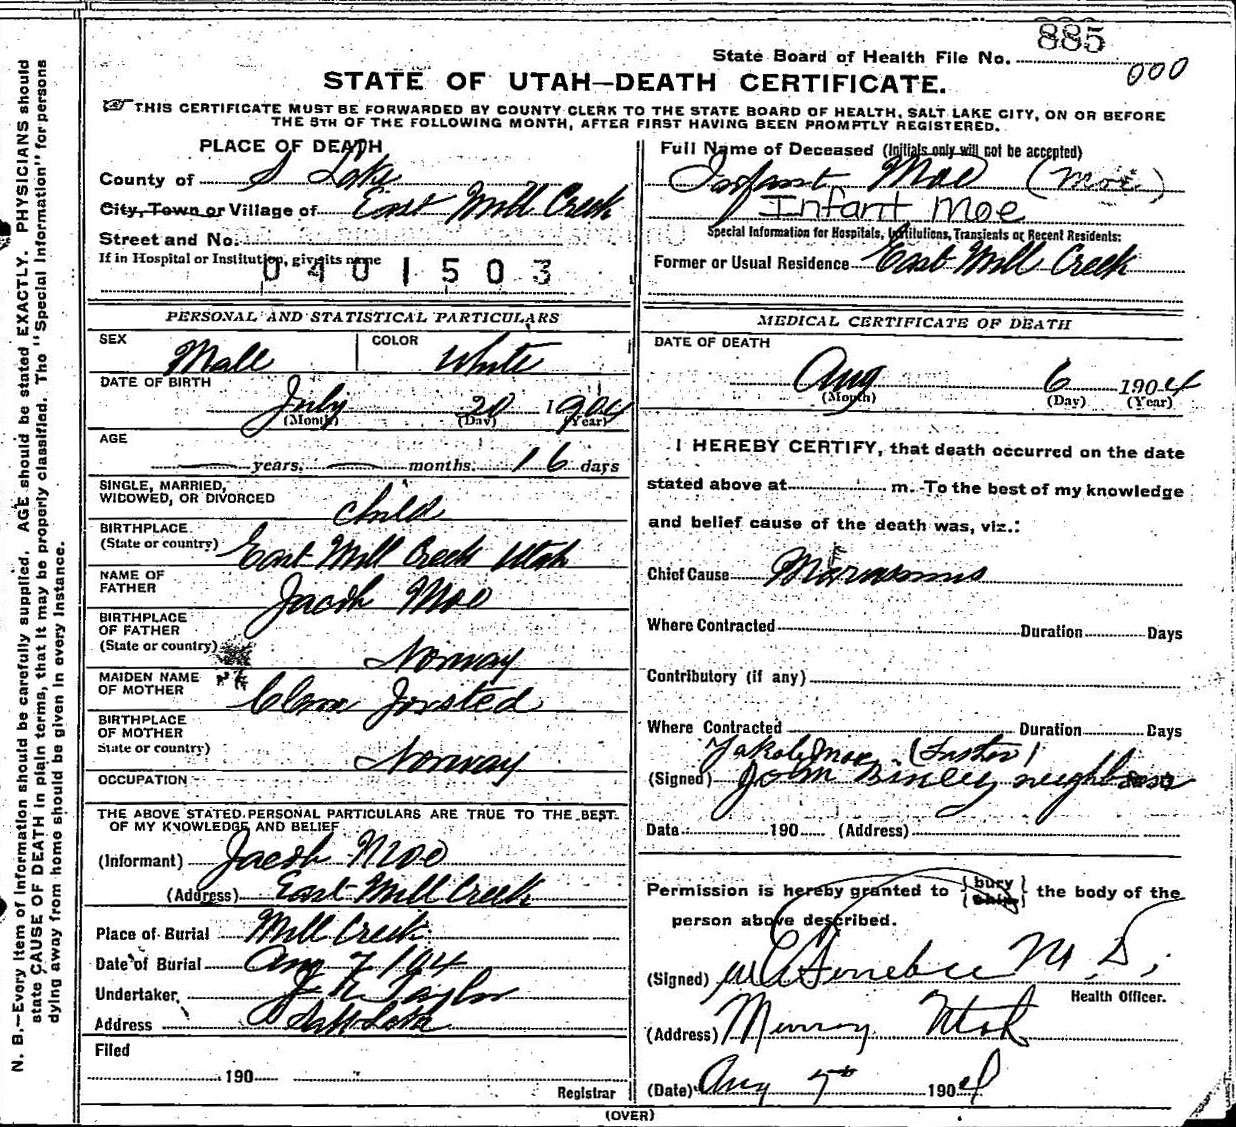 885
State Board of Health File No.
000
STATE OF UTAH—DEATH CERTIFICATE.
THIS CERTIFICATE MUST BE FORWARDED BY COUNTY CLERK TO THE STATE BOARD OF HEALTH, SALT LAKE CITY, ON OR BEFORE
THE 5TH OF THE FOLLOWING MONTH, AFTER FIRST HAVING BEEN PROMPTLY REGISTERED.
N. B.—Every item of information should be carefully supplied. AGE should be stated EXACTLY. PHYSICIANS should
state CAUSE OF DEATH in plain terms, that it may be properly classified. The "Special Information" for persons
dying away from home should be given in every instance.
PLACE OF DEATH
County of S Lake
City, Town or Village of East Mill Creek
Street and No.
If in Hospital or Institution, give its name
0401503
PERSONAL AND STATISTICAL PARTICULARS
SEX Male COLOR White
DATE OF BIRTH
July 20 1904
(Month) (Day) (Year)
AGE
years, months. 16 days
SINGLE, MARRIED,
WIDOWED, OR DIVORCED Child
BIRTHPLACE
(State or country) East Mill Creek Utah
NAME OF
FATHER Jacob Moe
BIRTHPLACE
OF FATHER
(State or country) Norway
MAIDEN NAME
OF MOTHER Jorsted
BIRTHPLACE
OF MOTHER
State or country) Norway
OCCUPATION
THE ABOVE STATED PERSONAL PARTICULARS ARE TRUE TO THE BEST
OF MY KNOWLEDGE AND BELIEF
(Informant) Jacob Moe
(Address) East Mill Creek
Place of Burial Mill Creek
Date of Burial Aug 7 / 04
Undertaker, Taylor
Address Salt Lake
Filed
190
Registrar
Full Name of Deceased (Initials only will not be accepted)
Infant Moe (Moe)
Infant Moe
Special Information for Hospitals, Institutions, Transients or Recent Residents:
Former or Usual Residence East Mill Creek
MEDICAL CERTIFICATE OF DEATH
DATE OF DEATH
Aug 6 1904
(Month) (Day) (Year)
I HEREBY CERTIFY, that death occurred on the date
stated above at m. To the best of my knowledge
and belief cause of the death was, viz.:
Chief Cause Marasmus
Where Contracted Duration Days
Contributory (if any)
Where Contracted Duration Days
Jakob Moe (Father)
(Signed) John neighbor
Date 190 (Address)
Permission is hereby granted to {bury ship} the body of the
person above described.
(Signed) M. D.
Health Officer.
(Address) Murray Utah
(Date) Aug 7th 1904
(OVER)